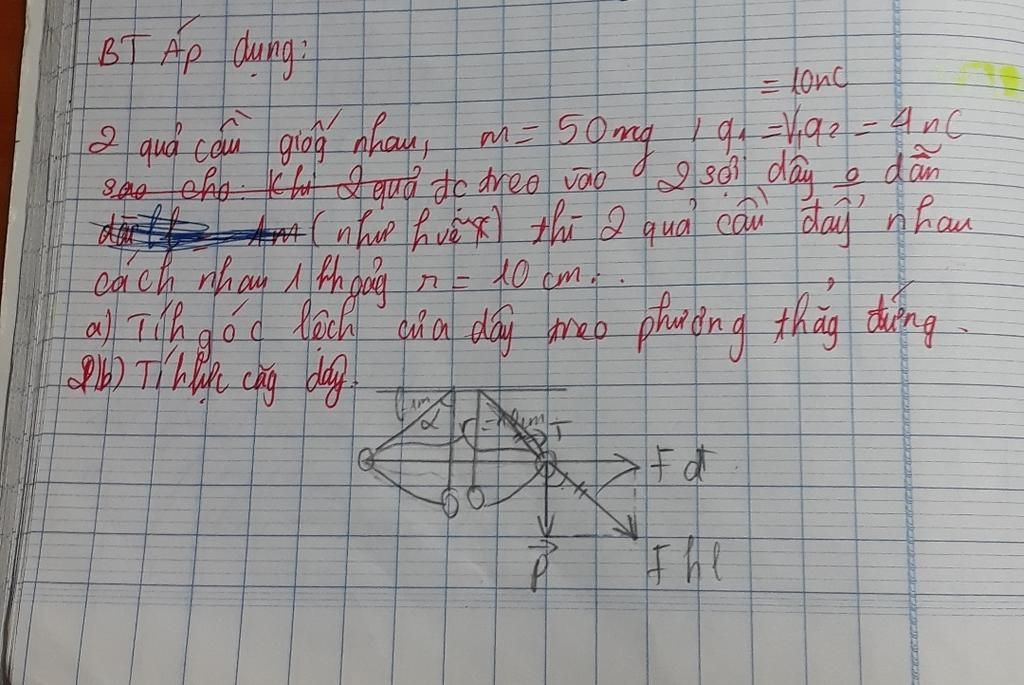 BT Áp dụng:
= 10nC
2 quả cầu giốg nhau, m = 50mg, q₁ = q₂ = 4nC
sao cho. Khi 2 quả đc treo vào 2 sợi dây o dẫn
(như hvẽ) thì 2 quả cầu đẩy nhau
cách nhau 1 khoảg r = 10 cm.
a) Tíh góc lệch của dây treo phương thẳg đứng.
b) Tíh lực căg dây.
α
T
F đ
P
F hl